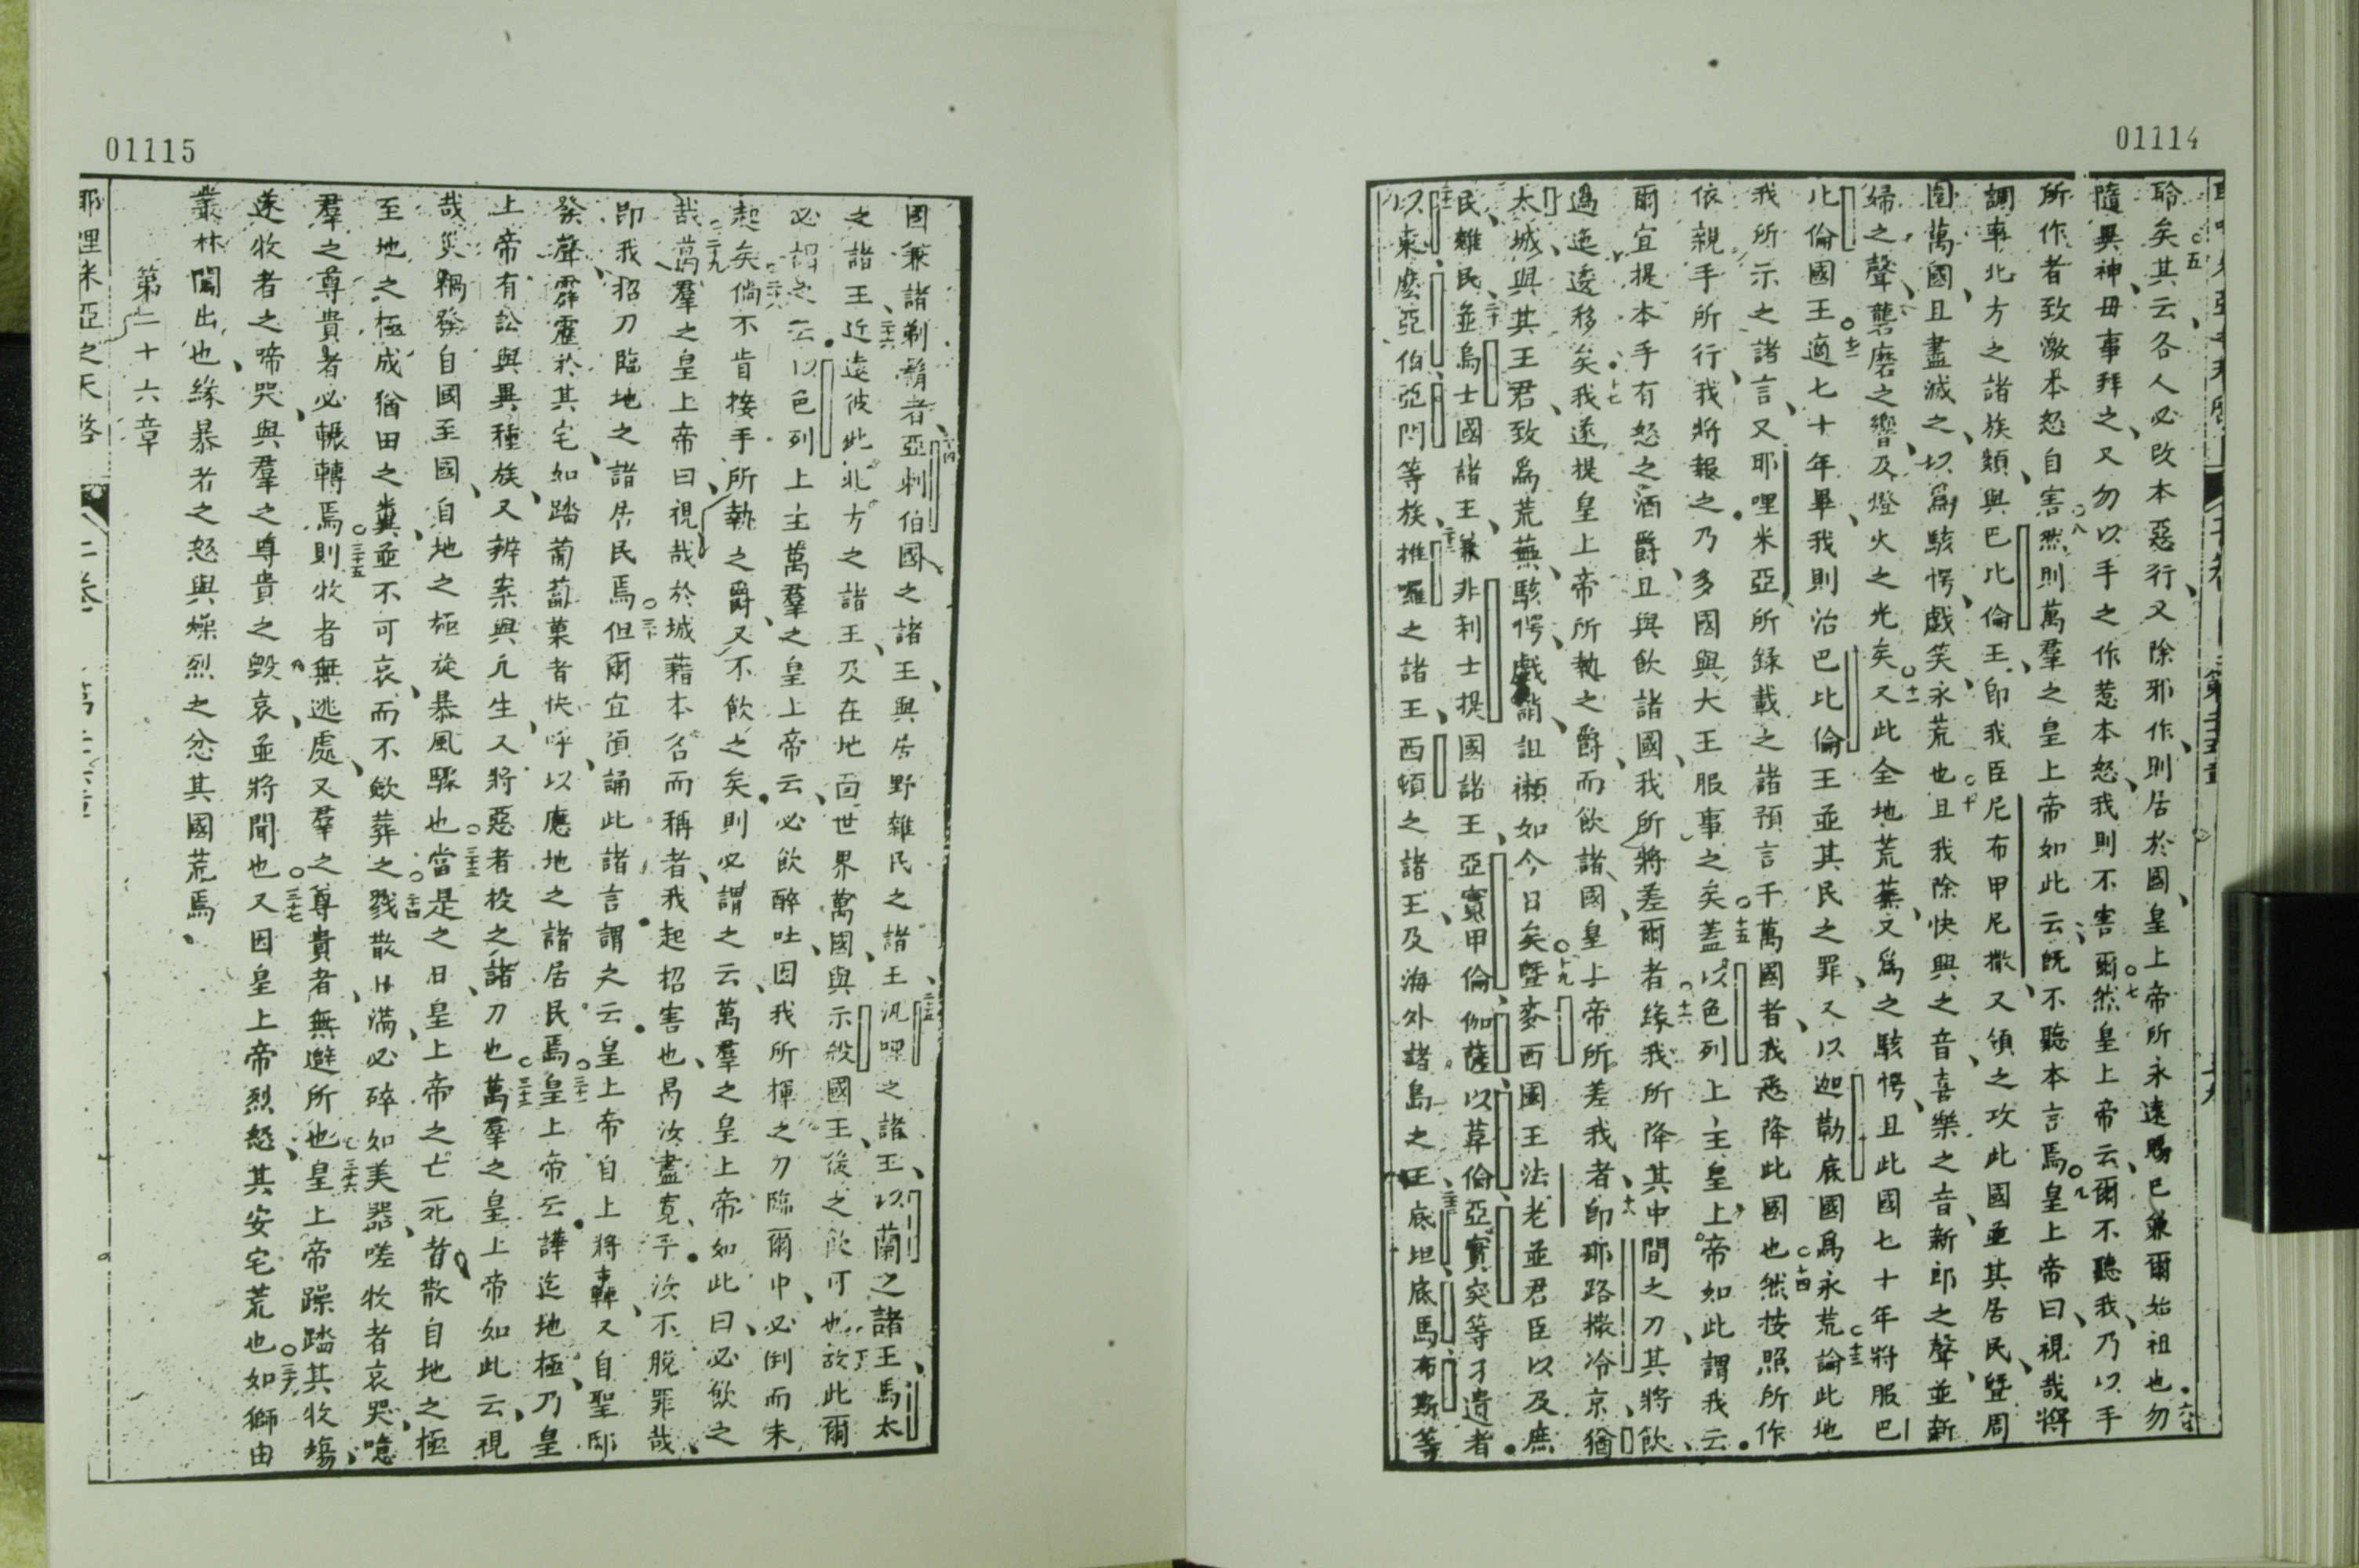 01114
聆矣其云各人必改本惡行又除邪作則居於國皇上帝所永遠賜已兼爾始祖也勿
隨異神毋事拜之又勿以手之作惹本怒我則不害爾然皇上帝云爾不聽我乃以手
所作者致激本怒自害然則萬羣之皇上帝如此云既不聽本言焉皇上帝曰視哉將
調率北方之諸族類與巴比倫王卽我臣尼布甲尼撒又領之攻此國並其居民曁周
圍萬國且盡滅之以爲駭愕戲笑永荒也且我除快興之音喜樂之音新郎之聲並新
婦之聲礱磨之響及燈火之光矣又此全地荒蕪又爲之駭愕且此國七十年將服巴
比倫國王適七十年畢我則治巴比倫王並其民之罪又以迦勒底國爲永荒論此地
我所示之諸言又耶哩米亞所錄載之諸預言于萬國者我悉降此國也然按照所作
依親手所行我將報之乃多國與大王服事之矣蓋以色列上主皇上帝如此謂我云
爾宜提本手有怒之酒爵且與飮諸國我所將差爾者緣我所降其中間之刀其將飮
過迤逶移矣我遂提皇上帝所執之爵而飮諸國皇上帝所差我者卽耶路撒冷京猶
太城與其王君致爲荒蕪駭愕戲誚詛瀨如今日矣曁麥西國王法老並君臣以及庶
民雜民並烏士國諸王兼非利士提國諸王亞實甲倫伽薩以革倫亞實突等孑遺者
以東麽亞伯亞們等族推羅之諸王西頓之諸王及海外諸島之王底坦底馬布斯等
01115
國兼諸剃鬚者亞剌伯國之諸王與居野雜民之諸王汎哩之諸王以蘭之諸王馬太
之諸王近遠彼此北方之諸王及在地面世界萬國與示殺國王後之飮可也故此爾
必謂之云以色列上主萬羣之皇上帝云必飮醉吐因我所揮之刀臨爾中必倒而未
起矣倘不肯接手所執之爵又不飮之矣則必謂之云萬羣之皇上帝如此曰必飮之
哉萬羣之皇上帝曰視哉於城藉本名而稱者我起招害也曷汝盡寬乎汝不脫罪哉
卽我招刀臨地之諸居民焉但爾宜預誦此諸言謂之云皇上帝自上將轟又自聖邸
發聲霹靂於其宅如踏葡萄菓者快呼以應地之諸居民焉皇上帝云譁迄地極乃皇
上帝有訟與異種族又辨案與凡生又將惡者投之諸刀也萬羣之皇上帝如此云視
哉災禍發自國至國自地之極旋暴風驟也當是之日皇上帝之亡死者散自地之極
至地之極成猶田之糞並不可哀而不歛葬之戮散日滿必碎如美器嗟牧者哀哭噫
羣之尊貴者必輾轉焉則牧者無逃處又羣之尊貴者無避所也皇上帝躁踏其牧塲
遂牧者之啼哭與羣之尊貴之毀哀並將聞也又因皇上帝烈怒其安宅荒也如獅由
叢林闖出也緣暴者之怒與燥烈之忿其國荒焉
第二十六章
耶哩米亞之天啓 二卷